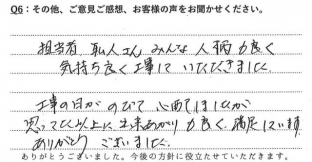 Q6：その他、ご意見ご感想、お客様の声をお聞かせください。
担当者、職人さん みんな人柄が良く
気持ち良く工事して いただきました。
工事の日がのびて 心配しましたが
思ってた以上に 出来あがりが良く、満足しています。
ありがとう ございました。
ありがとうございました。今後の方針に役立たせていただきます。